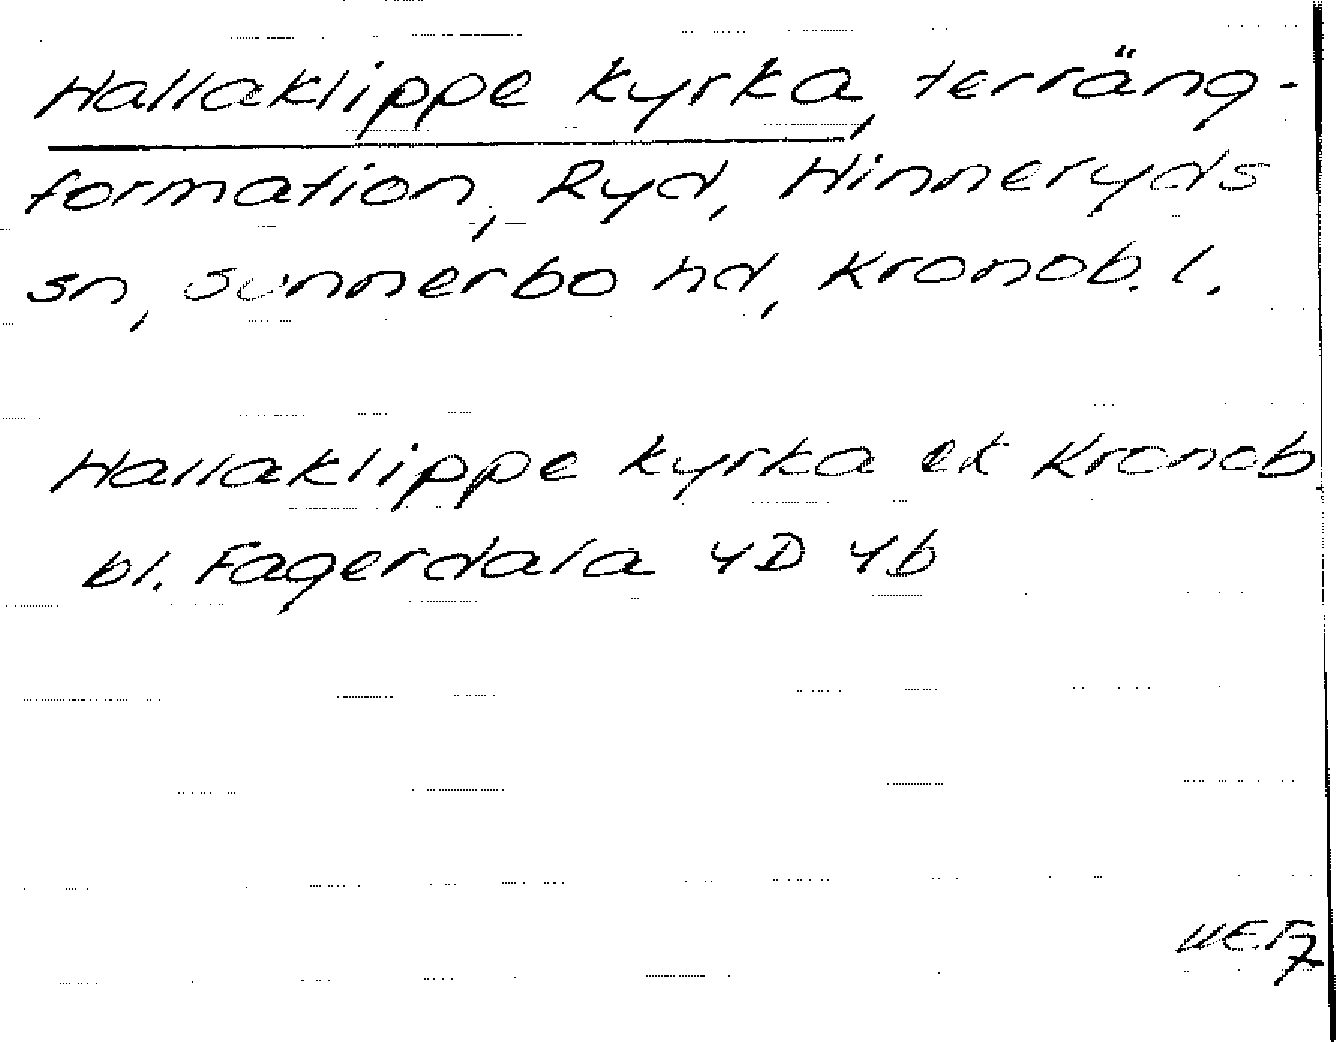 Hallaklippe kyrka, terräng-
formation, Ryd, Hinneryds
sn, Sunnerbo hd, Kronob. l.
Hallaklippe kyrka ek Kronob
bl. Fagerdala 4D 4b